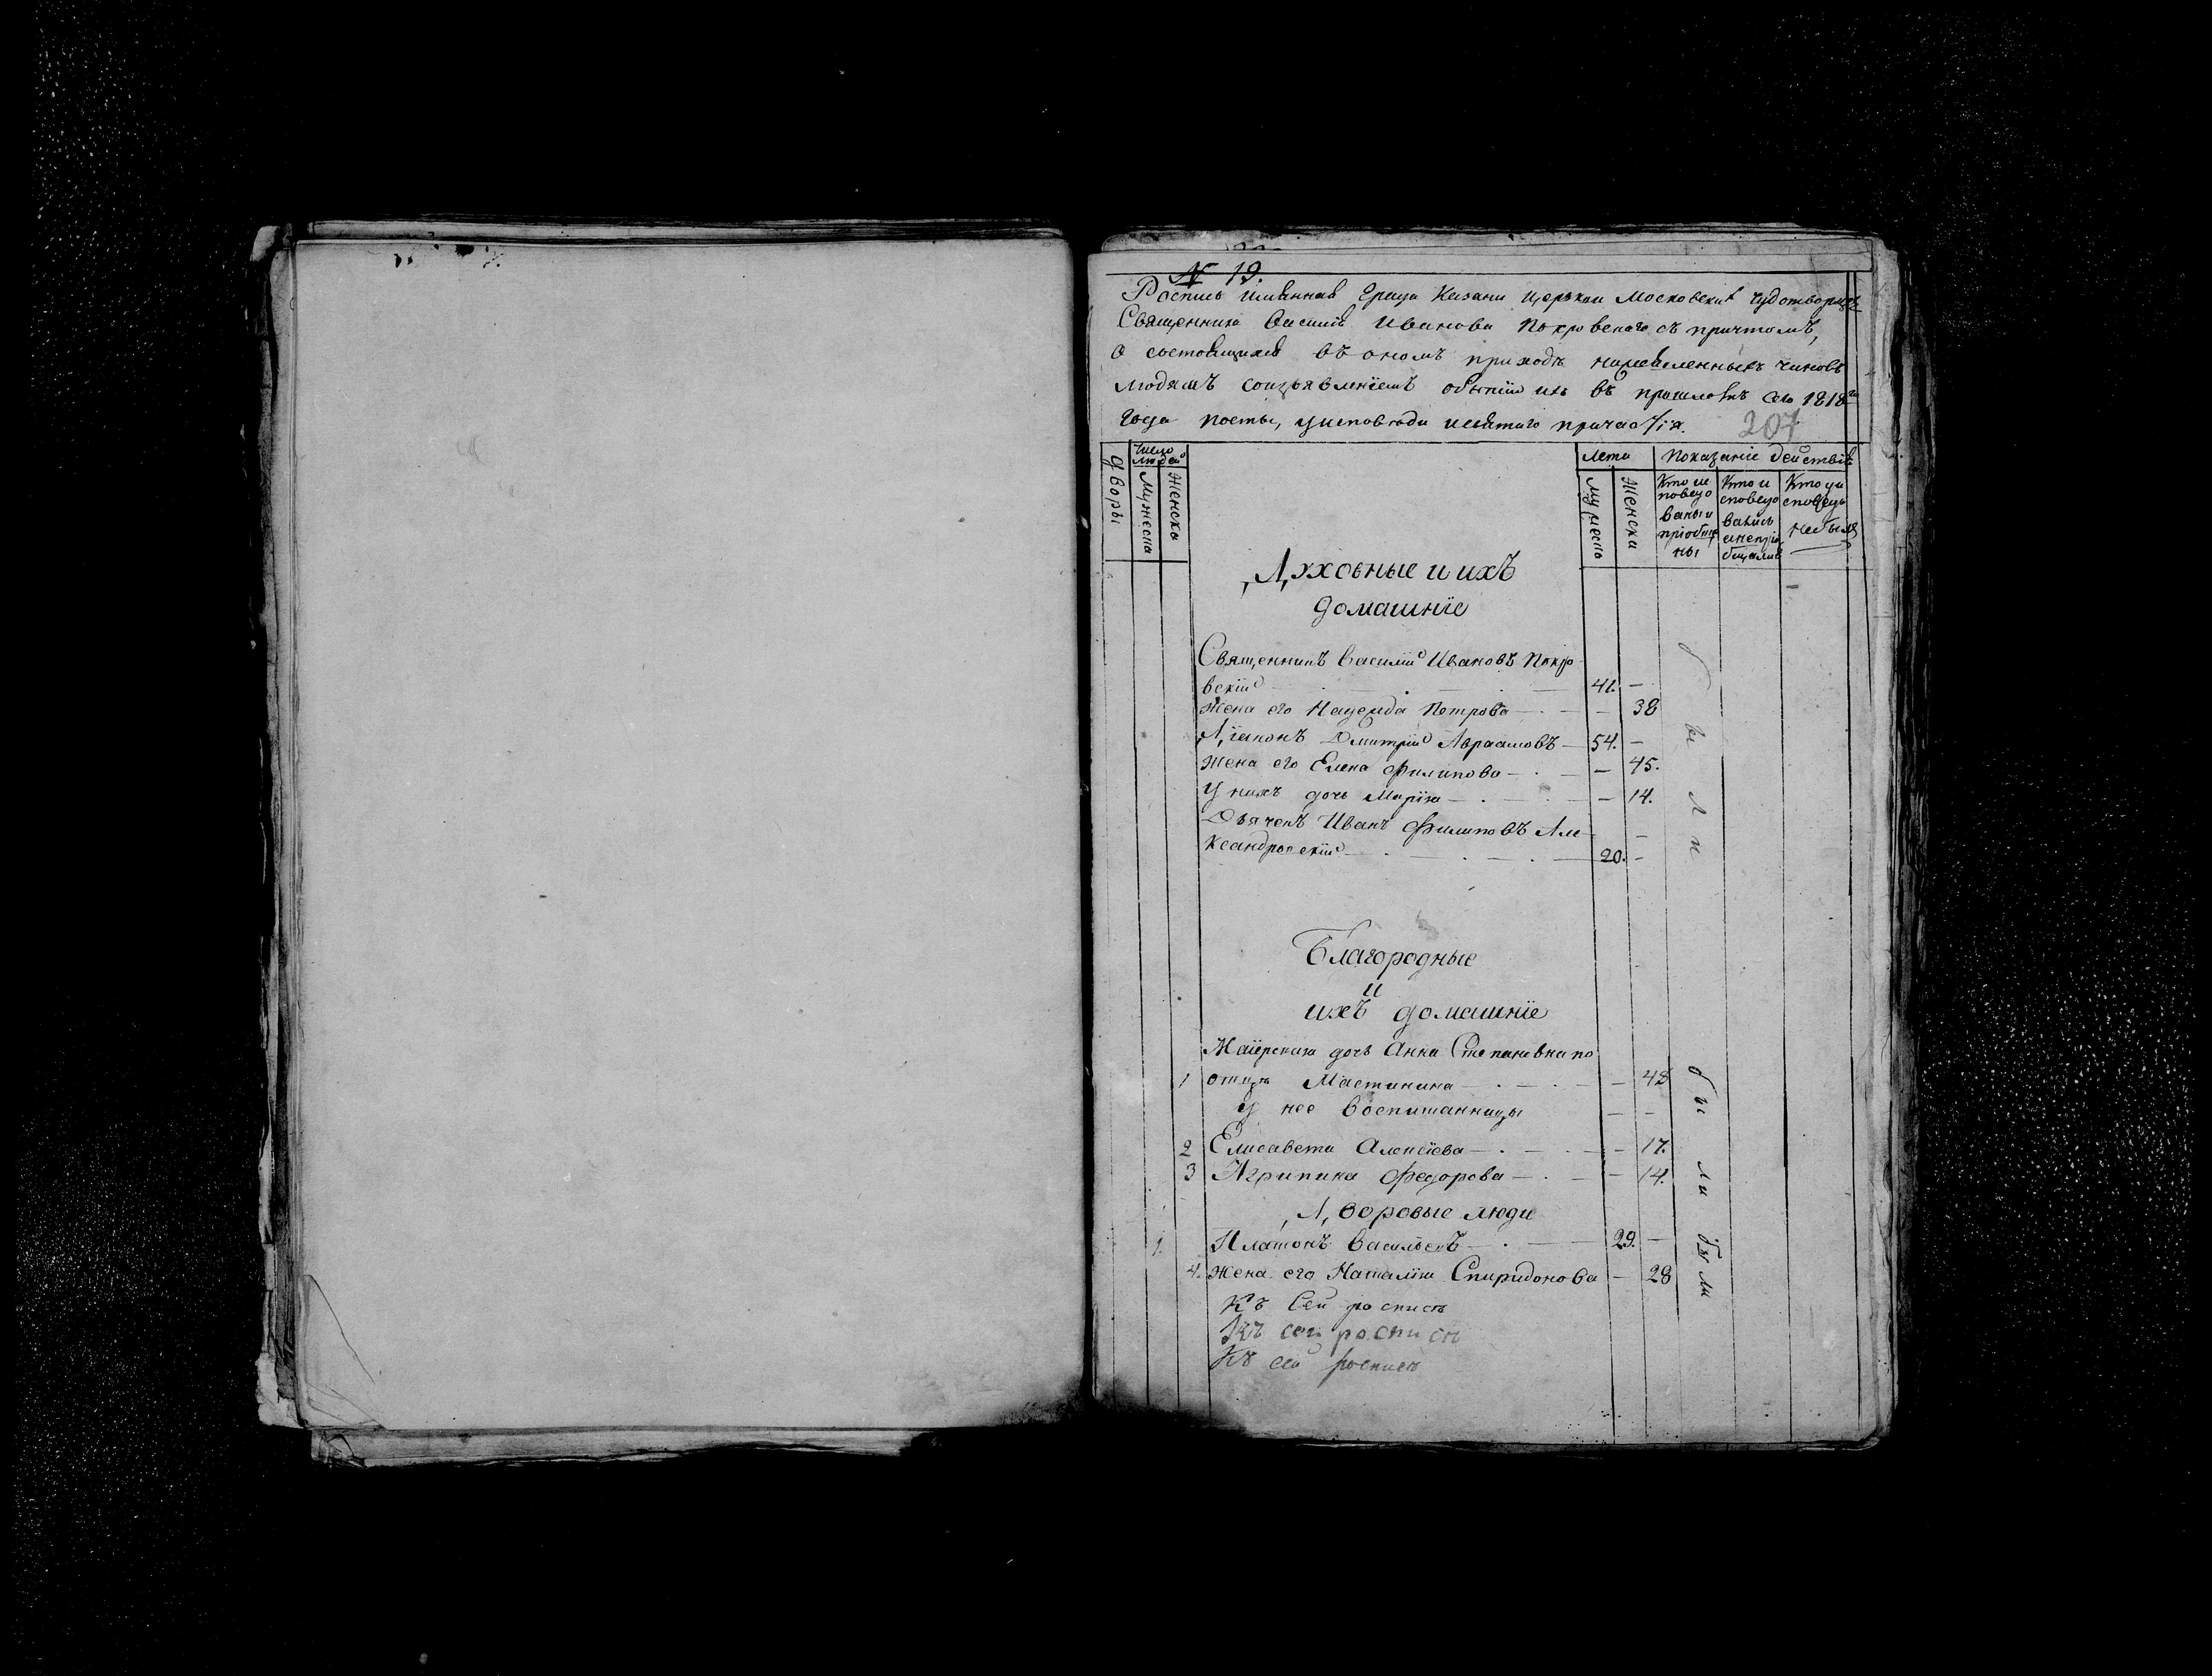 № 19.
Роспись имянная града Казани церкви Московских чудотворцевъ
Священника Василья Иванова Покровскаго съ причтомъ,
о состоящихъ въ ономъ приходѣ нижеявленныхъ чиновъ
людямъ соизъявленіемъ бытіи ихъ въ прошломъ сего 1818го
года посты, у исповѣди и святаго причастія.
207
дворы
Число людей
Мужеска
Женска
Лета
Показаніе действія
мужеска
женска
Кто исповедованы и пріобщены
Кто исповедовались а не пріобщались
Кто у исповеди не былъ
Духовные и ихъ
домашніе
Священникъ Василій Ивановъ Покро
вскій — 41. —
Жена его Надежда Петрова — — 38
Діаконъ Дмитрій Авраамовъ — 54. —
Жена его Елена Филипова — — 45.
У нихъ дочь Марія — — 14.
Дьячекъ Иванъ Филиповъ Але —
ксандровскій — 20. —
были
Благородные
и
ихъ домашніе
Маіорская дочь Анна Степановна по
1 отцѣ Мастинина — — 48
У нее воспитанницы — —
2 Елисавета Алексіева — — 17.
3 Агрипина Федорова — — 14.
были
Дворовые люди
1. Платонъ Васильевъ — 29. —
4. Жена его Наталія Спиридонова — 28
были
Къ сей росписѣ
Къ сей росписѣ
Къ сей росписѣ